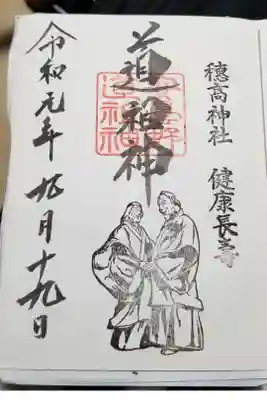 穂高神社 健康長寿
道祖神
令和元年 九月十九日